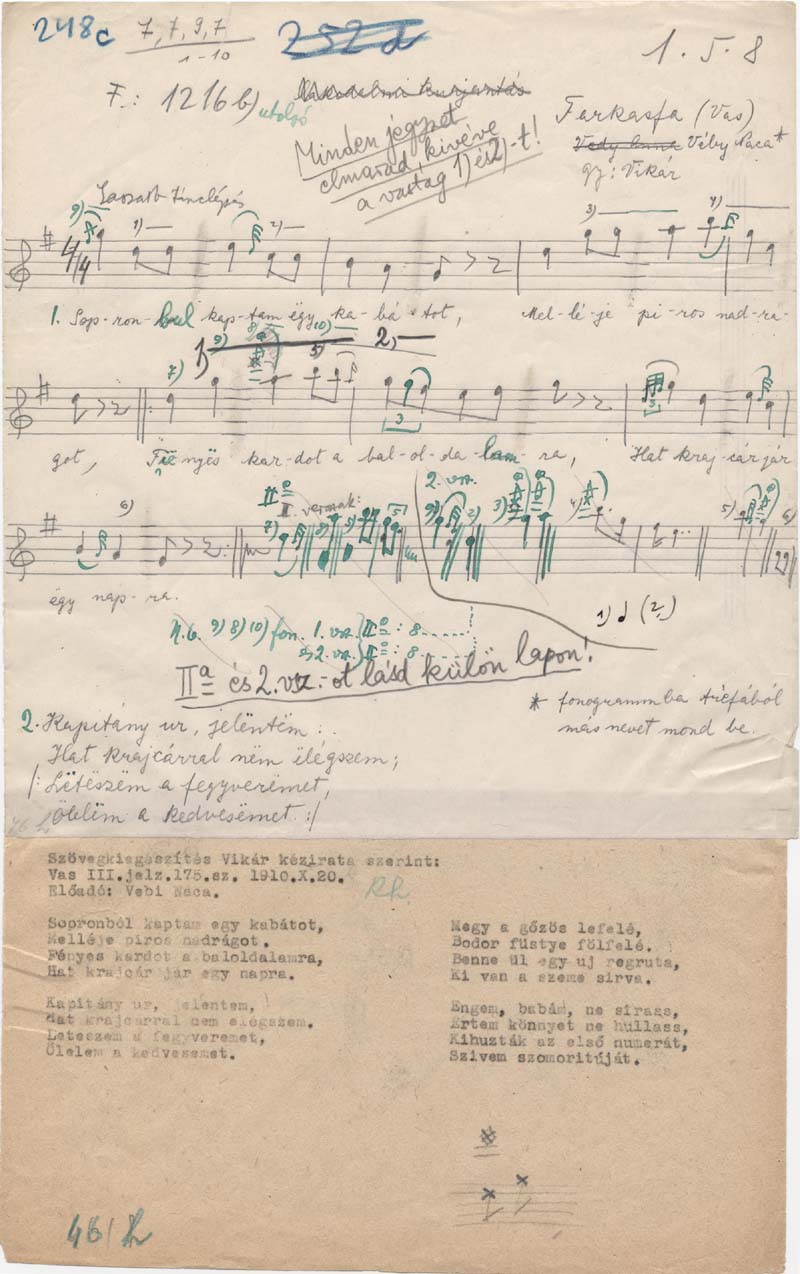 248c 7, 7, 9, 7 252d 1. 5. 8
1-10
F.: 1216 b) utolsó
Farkasfa (Vas)
Minden jegyzet
elmarad, kivéve
a vastag 1) és 2)-t!
Vedy Anna Véby Naca*
gy: Vikár
Lassabb tánclépés
9) 1) 2) 3) 4)
4/4
1. Sop-ron-bul kap-tam ëgy ka-bá-tot, Mel-lé-je pi-ros nad-rá-
7) 1, 9) 8) 10) 5) 2,
3 3
got, Fié-nyës kar-dot a bal-ol-da-lam-ra, Hat kraj-cár jár
6) IIª I. versnak: 2. vsz.
7) 8) 5) 9) 2) 3) 4) 5) 6)
ëgy nap-ra.
1) (2.)
N.b. 9) 8) 10) fon. 1. vsz. IIª: 8......
és 2. vsz. IIª: 8......
IIª és 2. vsz.-ot lásd külön lapon!
* fonogrammba tréfából
más nevet mond be.
2. Kapitány ur, jelëntëm:
Hat krajcárral nëm elégszem;
/: Lëtëszëm a fegyverëmet,
Ölelëm a kedvesëmet :/
Szövegkiegészítés Vikár kézirata szerint:
Vas III.jelz.175.sz. 1910.X.20.
Előadó: Vebi Naca.
Rh.
Sopronból kaptam egy kabátot,
Melléje piros nadrágot.
Fényes kardot a baloldalamra,
Hat krajcár jár egy napra.
Kapitány ur, jelentem,
Hat krajcárral nem elégszem.
Leteszem a fegyveremet,
Ölelem a kedvesemet.
Megy a gőzös lefelé,
Bodor füstye fölfelé.
Benne ül egy uj regruta,
Ki van a szeme sirva.
Engem, babám, ne sirass,
Értem könnyet ne hullass,
Kihuzták az első numerát,
Szivem szomoritúját.